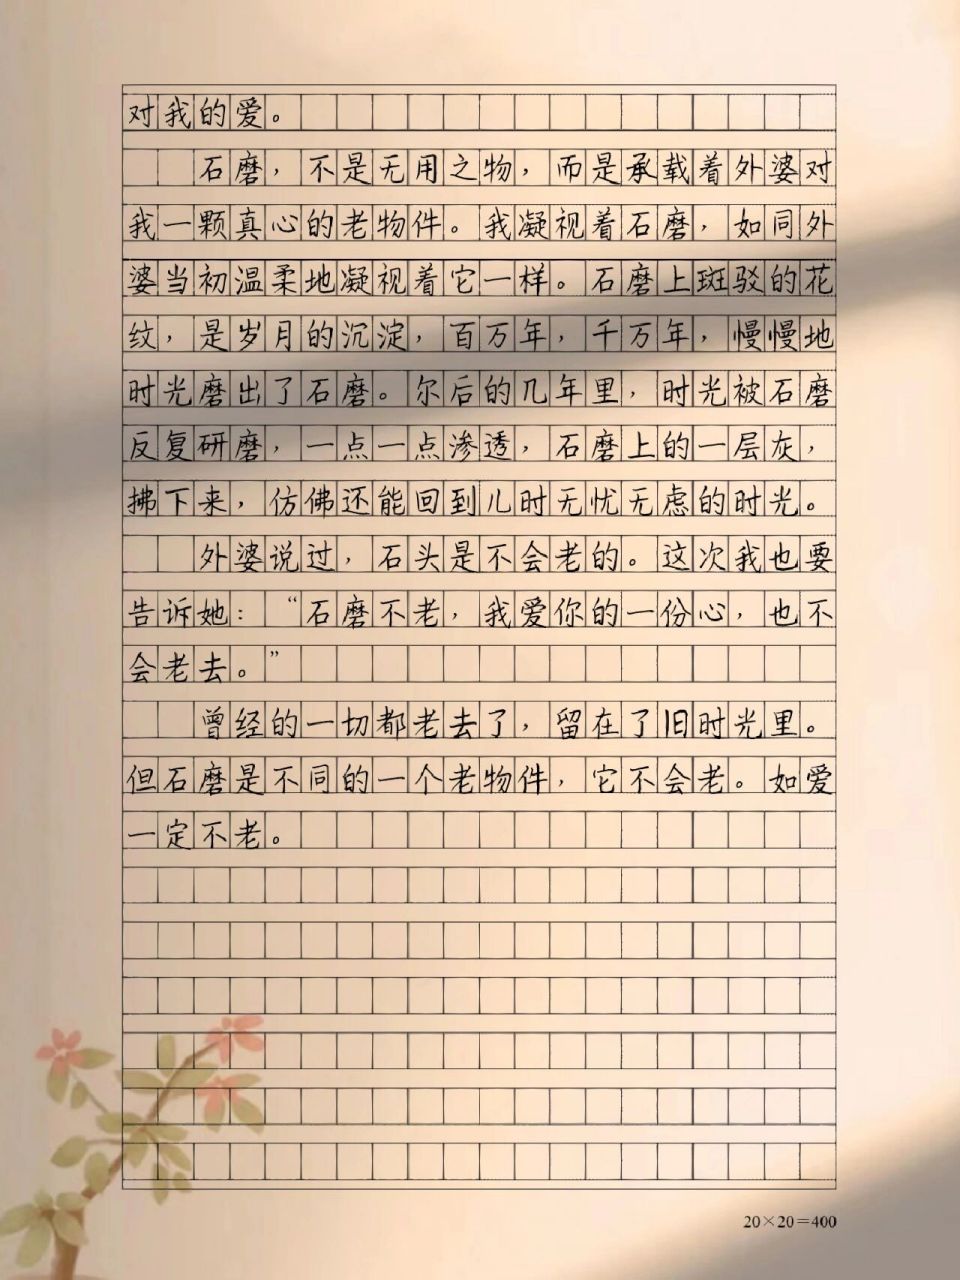 对我的爱。
石磨，不是无用之物，而是承载着外婆对
我一颗真心的老物件。我凝视着石磨，如同外
婆当初温柔地凝视着它一样。石磨上斑驳的花
纹，是岁月的沉淀，百万年，千万年，慢慢地
时光磨出了石磨。尔后的几年里，时光被石磨
反复研磨，一点一点渗透，石磨上的一层灰，
拂下来，仿佛还能回到儿时无忧无虑的时光。
外婆说过，石头是不会老的。这次我也要
告诉她：“石磨不老，我爱你的一份心，也不
会老去。”
曾经的一切都老去了，留在了旧时光里。
但石磨是不同的一个老物件，它不会老。如爱
一定不老。
20×20=400